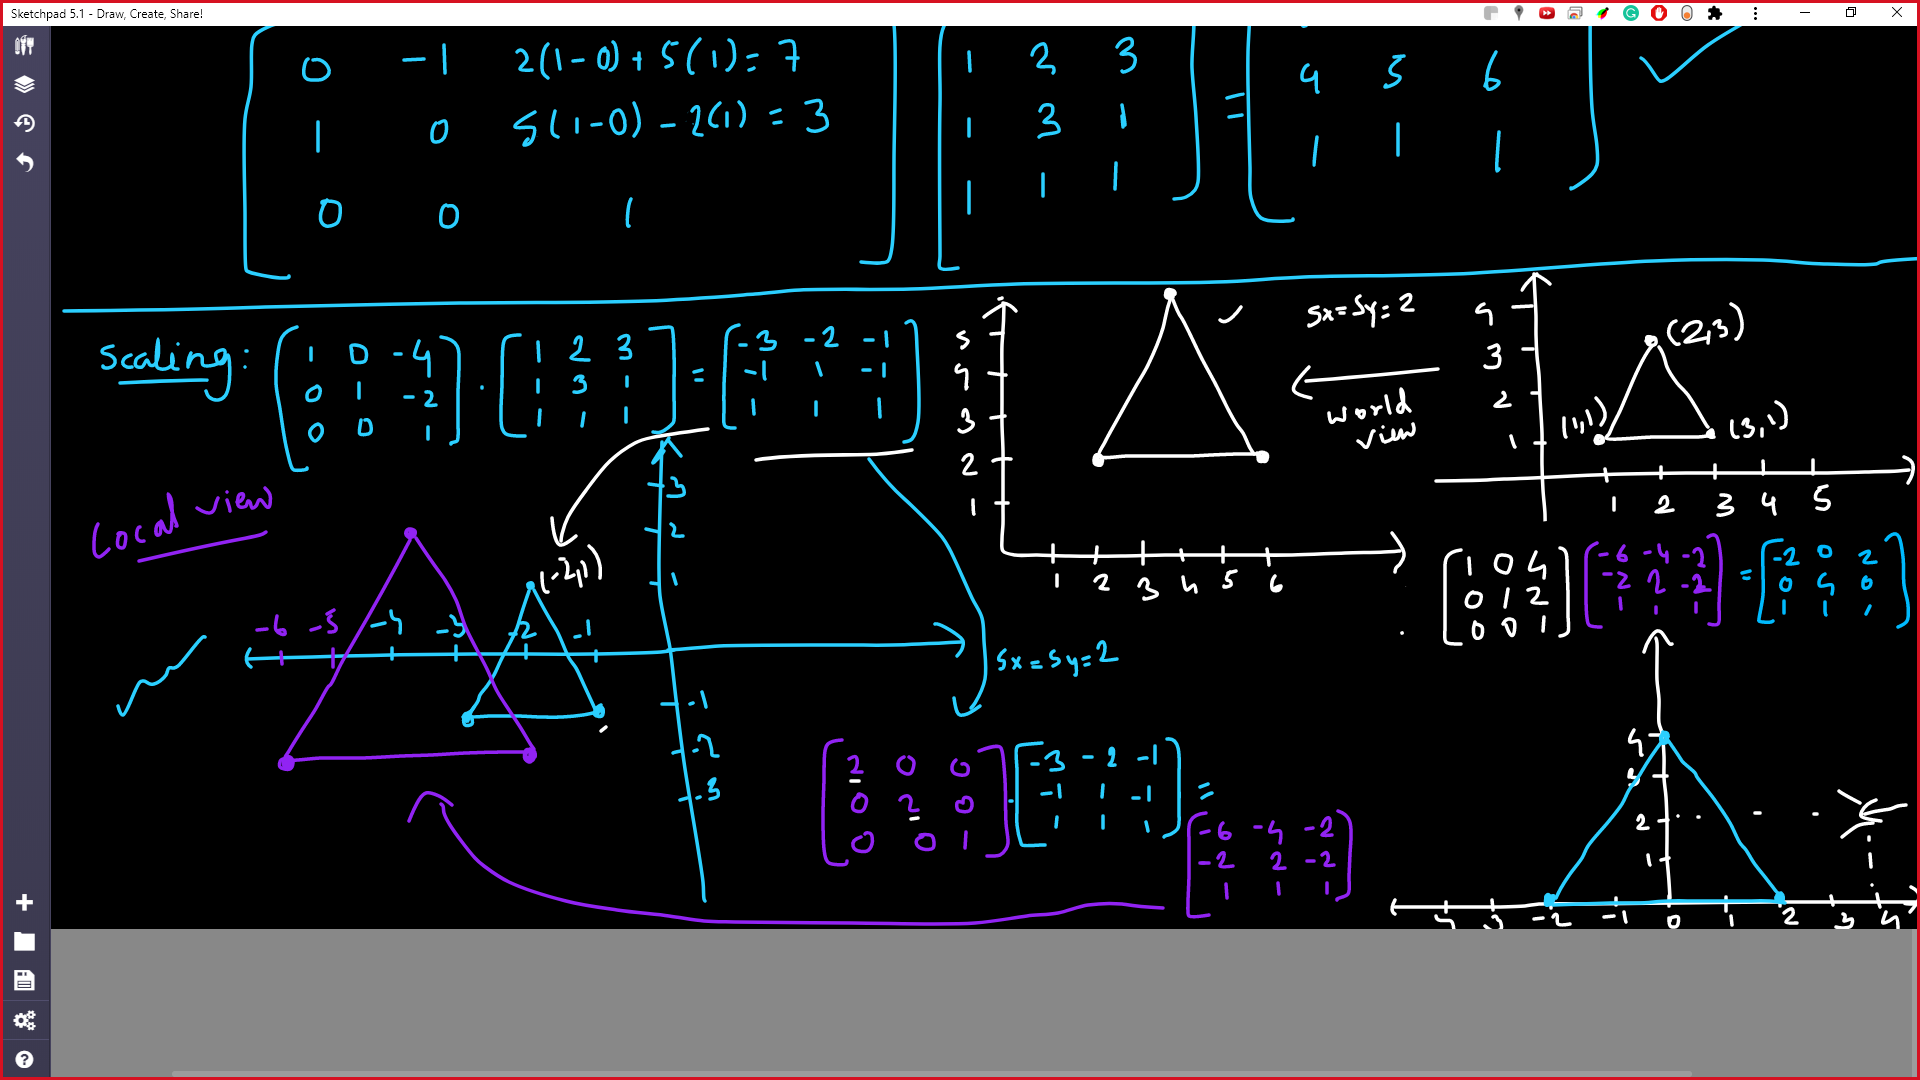 Sketchpad 5.1 - Draw, Create, Share!
0 -1 2(1-0)+5(1)=7
1 0 5(1-0)-2(1)=3
0 0 1
1 2 3
1 3 1
1 1 1
=
4 5 6
1 1 1
Scaling:
1 0 -4
0 1 -2
0 0 1
.
1 2 3
1 3 1
1 1 1
=
-3 -2 -1
-1 1 -1
1 1 1
5
4
3
2
1
1 2 3 4 5 6
Sx=Sy=2
world
view
4
3
2
1
(2,3)
(1,1)
(3,1)
1 2 3 4 5
Local view
(-2,1)
3
2
1
-6 -5 -4 -3 -2 -1
-1
-2
-3
Sx=Sy=2
2 0 0
0 2 0
0 0 1
.
-3 -2 -1
-1 1 -1
1 1 1
=
-6 -4 -2
-2 2 -2
1 1 1
1 0 4
0 1 2
0 0 1
-6 -4 -2
-2 2 -2
1 1 1
=
-2 0 2
0 4 0
1 1 1
4
3
2
1
-2 -1 0 1 2 3 4